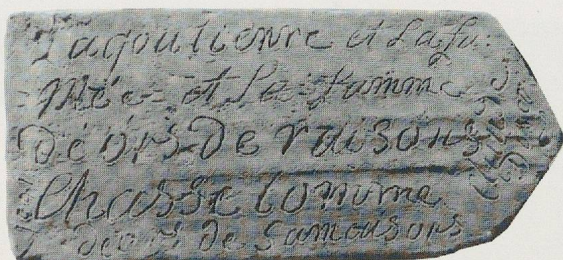 La goutienre et La fu:
Mée et La famme
déors de raisons
Chasse lomme
déors de Samousons